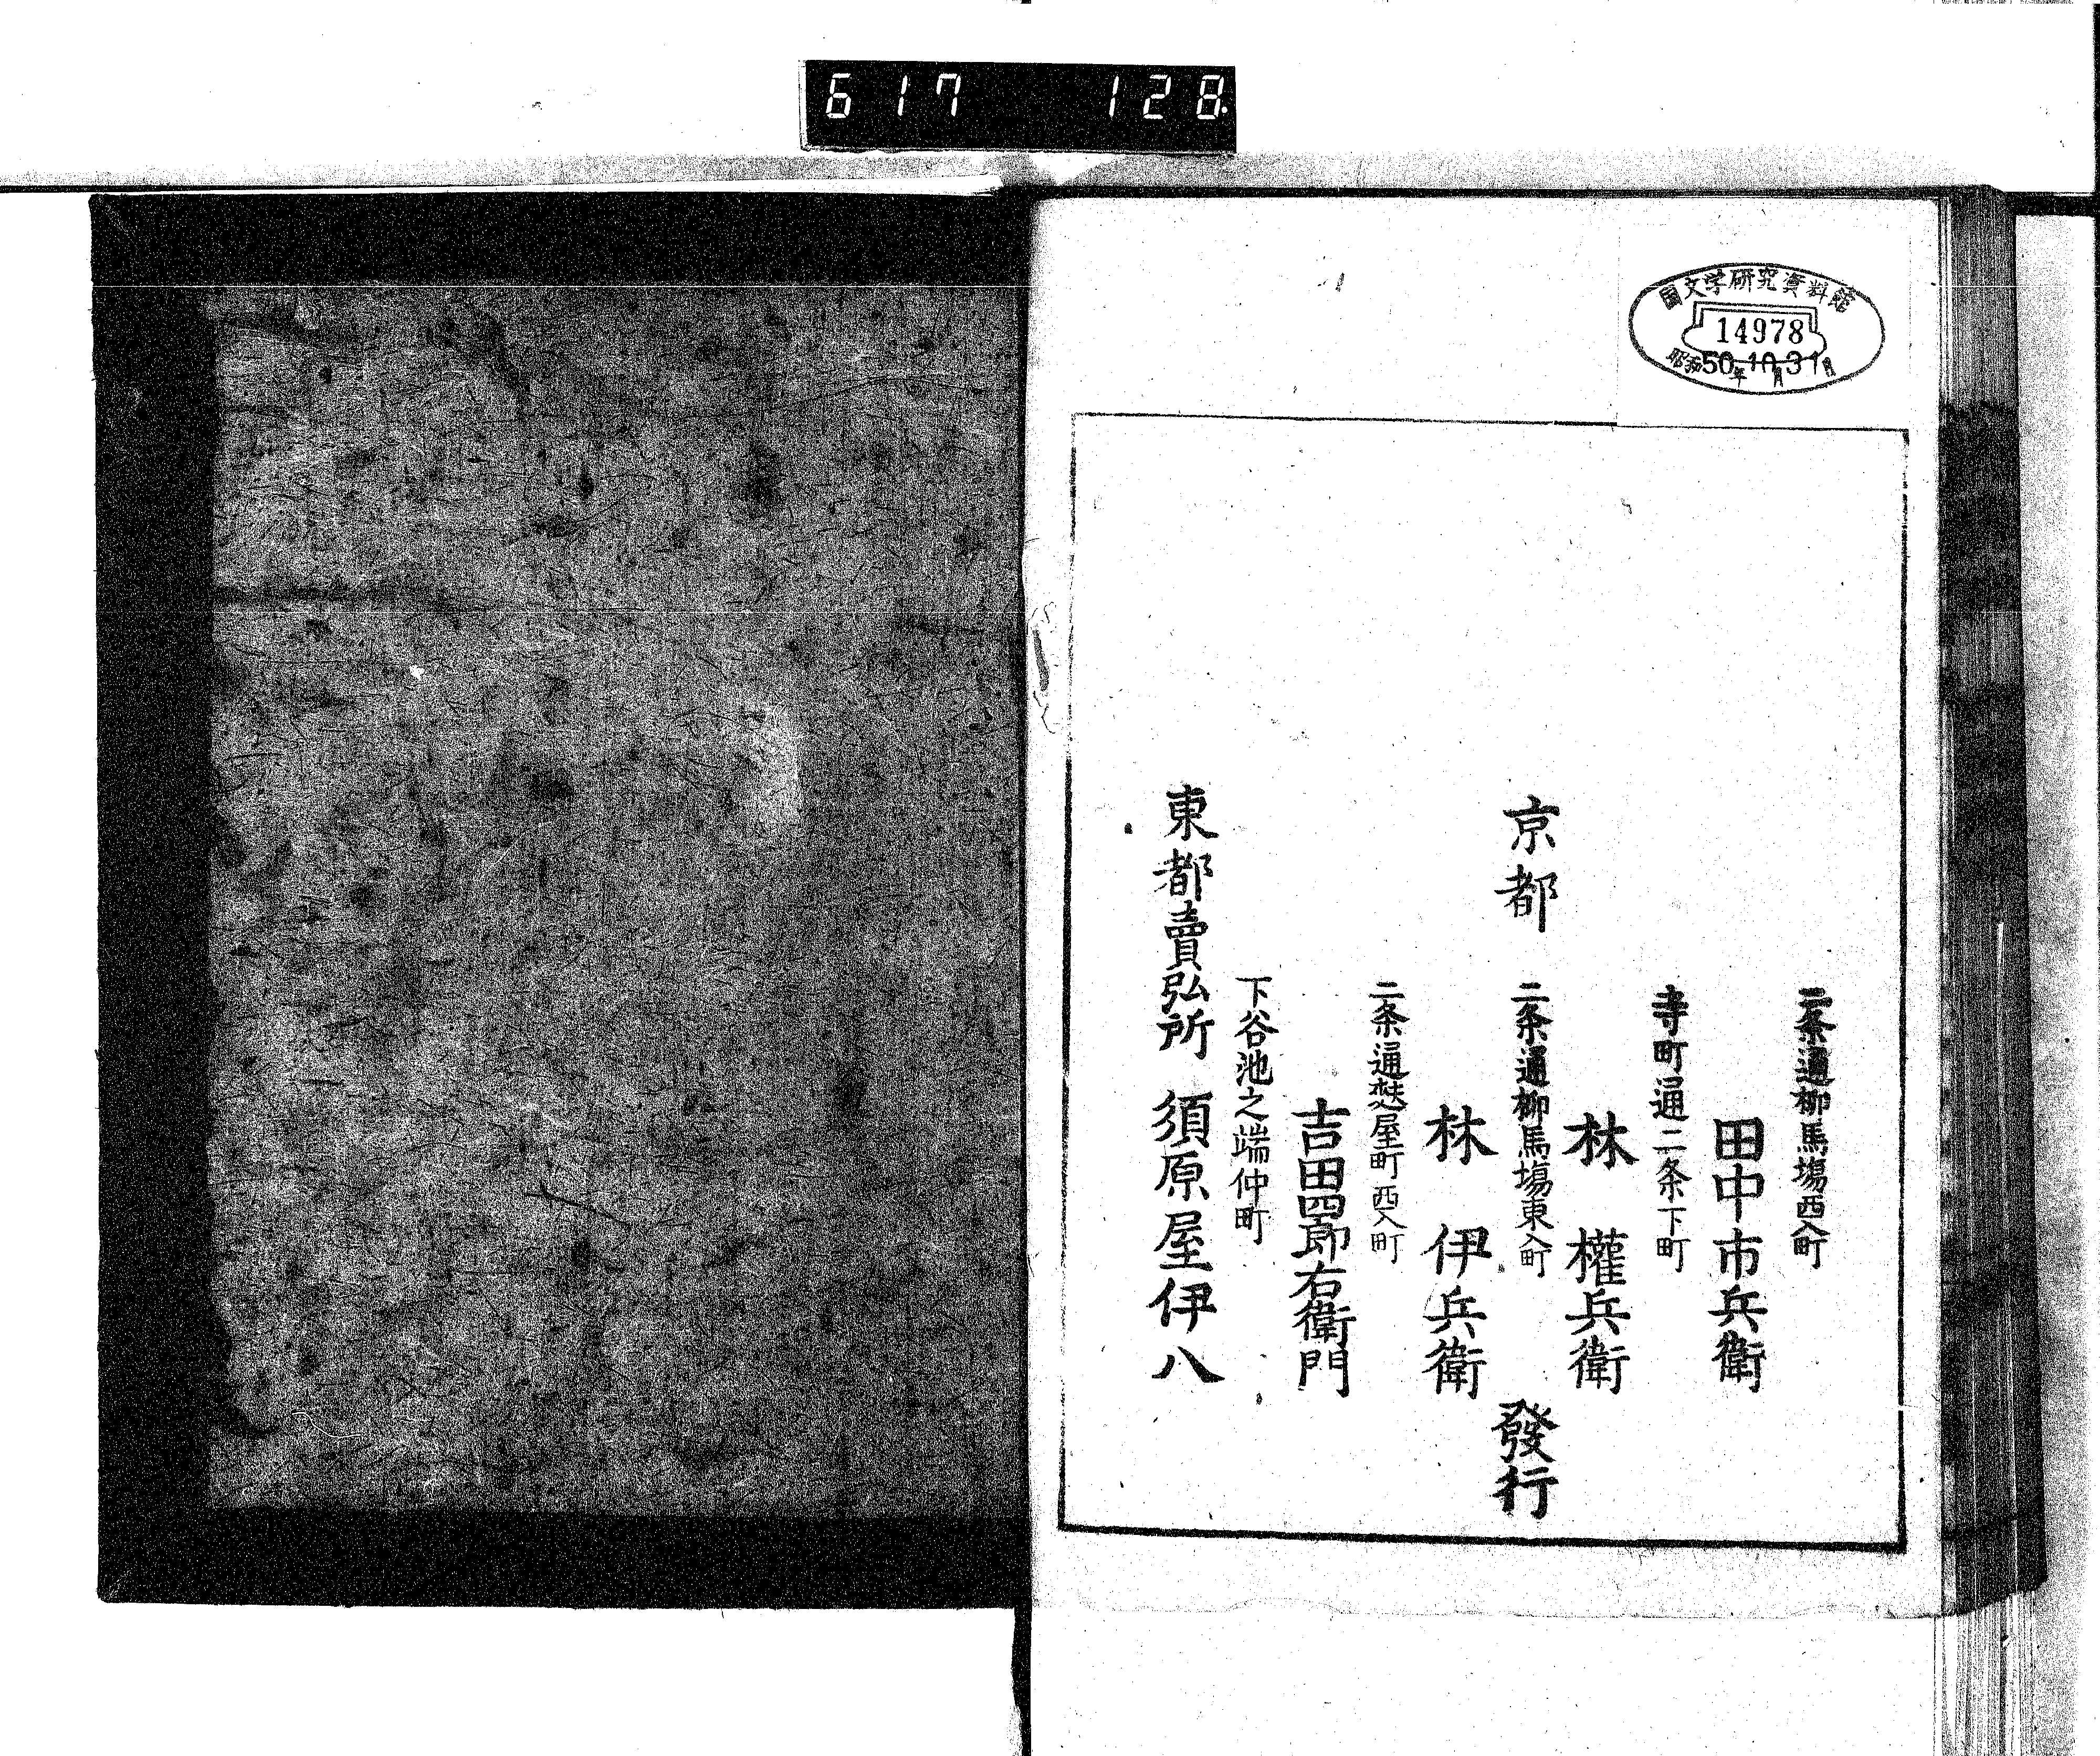 617 128
国文学研究資料館
14978
昭和50年10月31日
二条通柳馬場西入町
田中市兵衛
寺町通二条下町
林 權兵衛
京都 二条通柳馬場東入町
林 伊兵衛
發行
二条通麩屋町西入町
吉田四郎右衛門
下谷池之端仲町
東都賣弘所 須原屋伊八